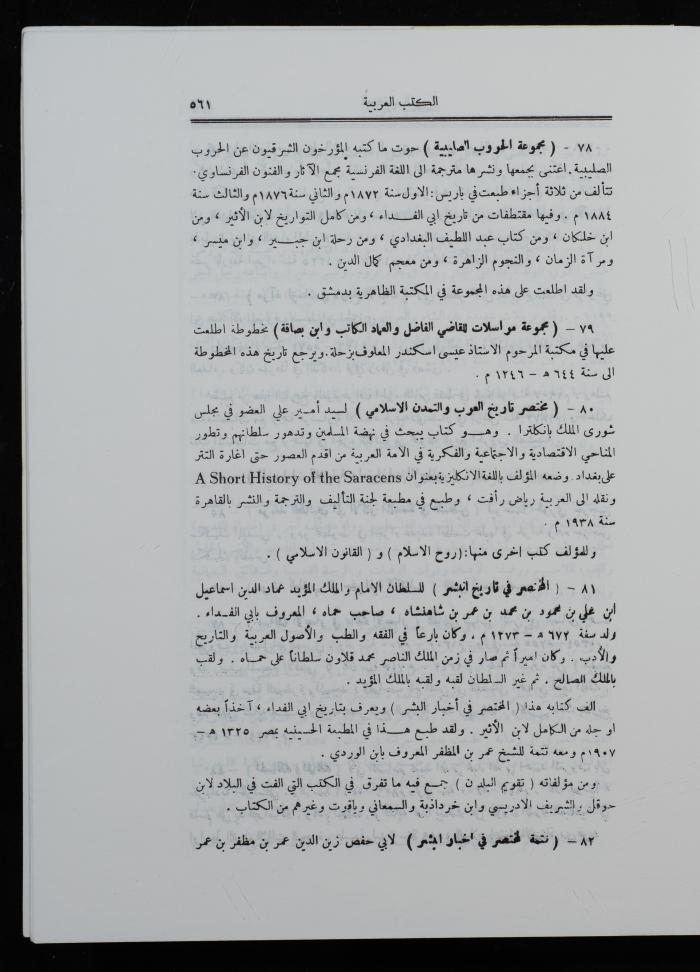 الكتب العربية ٥٦١
٧٨ - ( مجموعة الحروب الصليبية ) حوت ما كتبه المؤرخون الشرقيون عن الحروب
الصليبية . اعتنى بجمعها ونشرها مترجمة الى اللغة الفرنسية مجمع الآثار والفنون الفرنساوي .
تتألف من ثلاثة أجزاء طبعت في باريس : الاول سنة ١٨٧٢م والثاني سنة ١٨٧٦م والثالث سنة
١٨٨٤ م . وفيها مقتطفات من تاريخ ابي الفداء ، ومن كامل التواريخ لابن الأثير ، ومن
ابن خلكان ، ومن كتاب عبد اللطيف البغدادي ، ومن رحلة ابن جبير ، وابن ميسر ،
ومرآة الزمان ، والنجوم الزاهرة ، ومن معجم كمال الدين .
ولقد اطلعت على هذه المجموعة في المكتبة الظاهرية بدمشق .
٧٩ - ( مجموعة مراسلات للقاضي الفاضل والعماد الكاتب وابن بصاقة ) مخطوطة اطلعت
عليها في مكتبة المرحوم الاستاذ عيسى اسكندر المعلوف بزحلة . ويرجع تاريخ هذه المخطوطة
الى سنة ٦٤٤ هـ - ١٢٤٦ م .
٨٠ - ( مختصر تاريخ العرب والتمدن الاسلامي ) لسيد أمير علي العضو في مجلس
شورى الملك بانكلترا . وهو كتاب يبحث في نهضة المسلمين وتدهور سلطانهم وتطور
المناحي الاقتصادية والاجتماعية والفكرية في الامة العربية من اقدم العصور حتى اغارة التتر
على بغداد . وضعه المؤلف باللغة الانكليزية بعنوان A Short History of the Saracens
ونقله الى العربية رياض رأفت ، وطبع في مطبعة لجنة التأليف والترجمة والنشر بالقاهرة
سنة ١٩٣٨ م .
وللمؤلف كتب اخرى منها : ( روح الاسلام ) و ( القانون الاسلامي ) .
٨١ - ( المختصر في تاريخ البشر ) للسلطان الامام والملك المؤيد عماد الدين اسماعيل
ابن علي بن محمود بن محمد بن عمر بن شاهنشاه ، صاحب حماه ، المعروف بابي الفداء .
ولد سنة ٦٧٢ هـ - ١٢٧٣ م ، وكان بارعاً في الفقه والطب والأصول العربية والتاريخ
والأدب . وكان اميراً ثم صار في زمن الملك الناصر محمد قلاون سلطاناً على حماه . ولقب
بالملك الصالح . ثم غير السلطان لقبه ولقبه بالملك المؤيد .
الف كتابه هذا ( المختصر في أخبار البشر ) ويعرف بتاريخ ابي الفداء ، آخذاً بعضه
او جله من الكامل لابن الأثير . ولقد طبع هذا في المطبعة الحسينيه بمصر ١٣٢٥ هـ -
١٩٠٧م ومعه تتمة للشيخ عمر بن المظفر المعروف بابن الوردي .
ومن مؤلفاته ( تقويم البلدن ) جمع فيه ما تفرق في الكتب التي الفت في البلاد لابن
حوقل والشريف الادريسي وابن خرداذبة والسمعاني وياقوت وغيرهم من الكتاب .
٨٢ - ( تتمة المختصر في اخبار البشر ) لابي حفص زين الدين عمر بن مظفر بن عمر